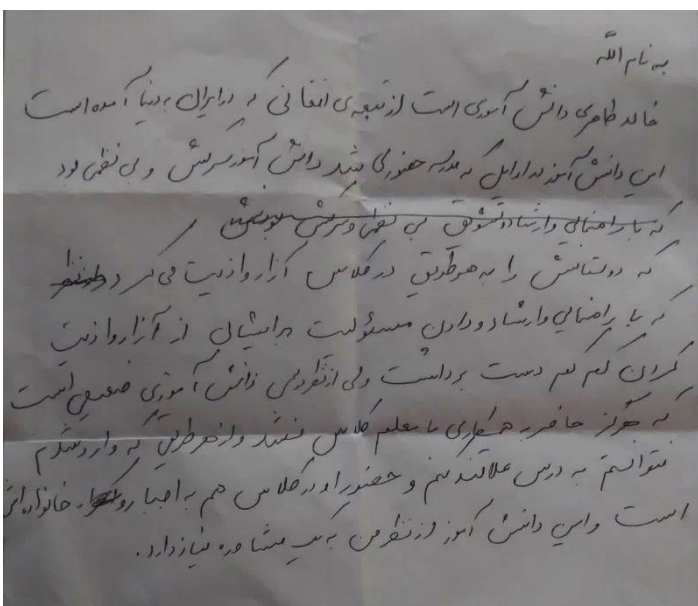 به نام الله
خالد طاهری دانش آموزی است از تبعه‌ی افغانی که در ایران به دنیا آمده است
این دانش آموز در اوایل که به مدرسه حضور می شد دانش آموز سرکش و بی نظمی بود
که با راهنمایی و ارشاد و تشویق بی نظمی و سرکشی
که دوستانش را به هر طریقی در کلاس آزار و اذیت می کرد
که با راهنمایی و ارشاد و دادن مسئولیت به ایشان از آزار و اذیت
کردن کم کم دست برداشت ولی از نظر درس دانش آموزی ضعیفی است
که هرگز حاضر به همکاری با معلم کلاس نشد و از هر طریقی که وارد شدم
نتوانستم به درس علاقمند کنم و حضور او در کلاس هم به اجبار و خانواده اش
است و این دانش آموز از نظر من به یک مشاوره نیاز دارد.